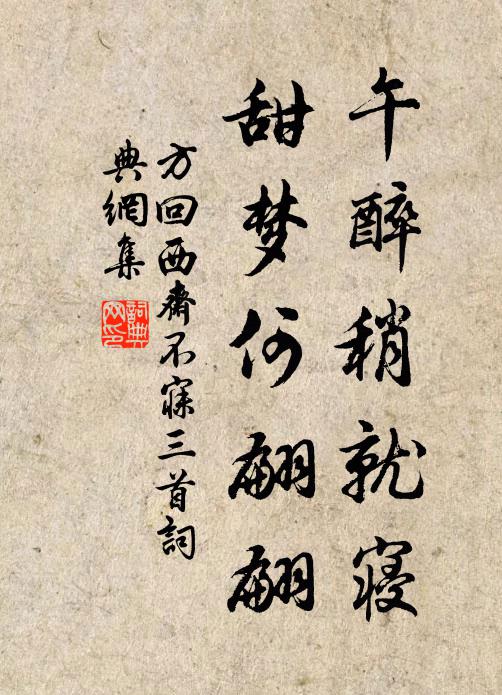 午醉稍就寝
甜梦何翩翩
方回西齋不寐三首詞
典網集
詞典網印